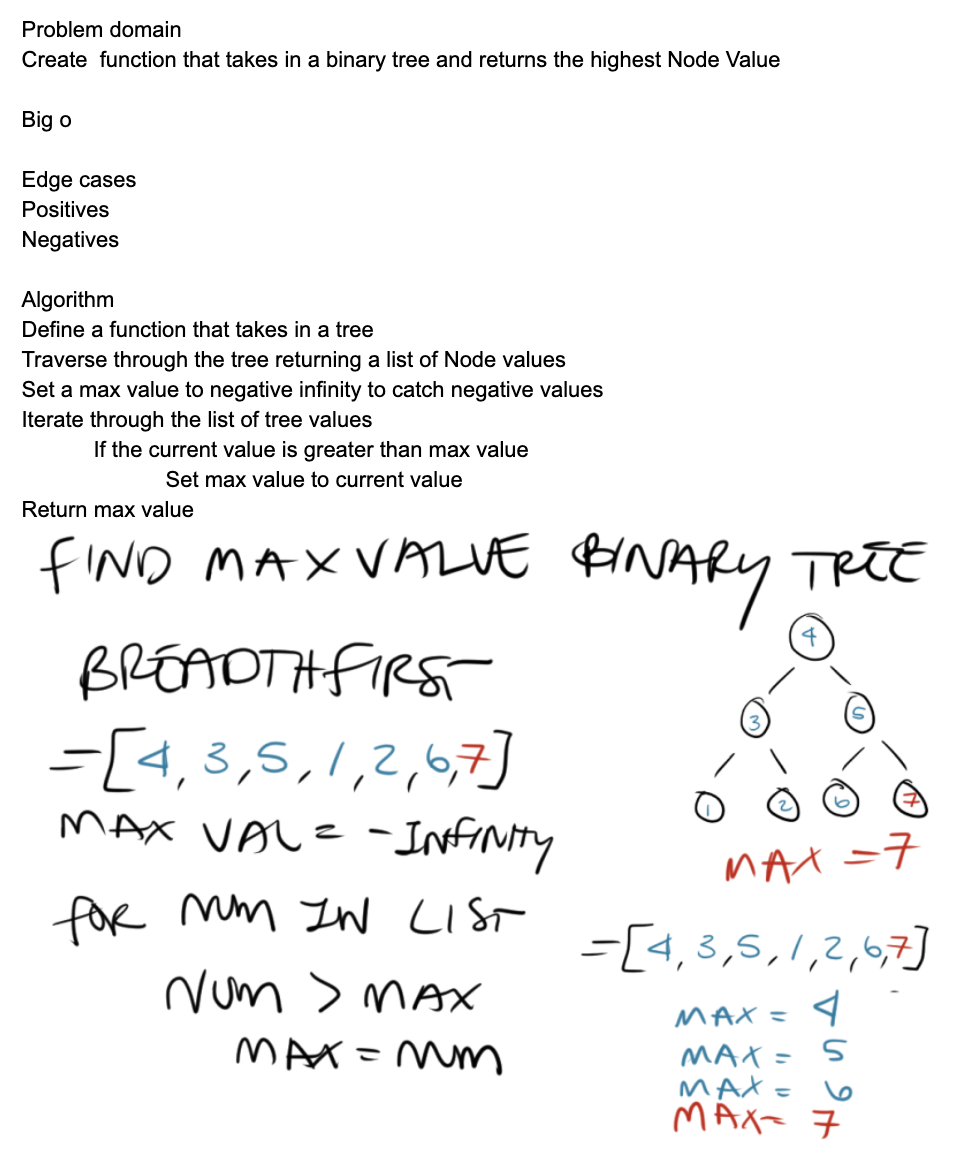 Problem domain
Create  function that takes in a binary tree and returns the highest Node Value
Big o
Edge cases
Positives
Negatives
Algorithm
Define a function that takes in a tree
Traverse through the tree returning a list of Node values
Set a max value to negative infinity to catch negative values
Iterate through the list of tree values
If the current value is greater than max value
Set max value to current value
Return max value
FIND MAX VALUE BINARY TREE
BREADTH FIRST
=[4,3,5,1,2,6,7]
MAX VAL = -INFINITY
FOR NUM IN LIST
NUM > MAX
MAX = NUM
4
3 5
1 2 6 7
MAX = 7
=[4,3,5,1,2,6,7]
MAX = 4
MAX = 5
MAX = 6
MAX = 7